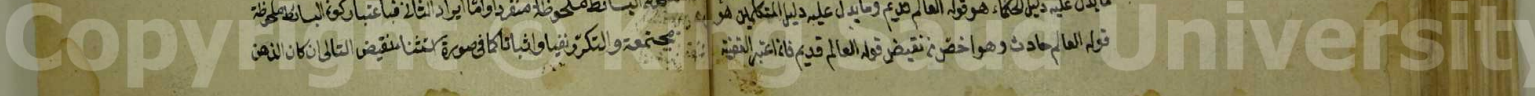 ما يدل عليه دليل الحكماء هو قوله العالم قديم وما يدل عليه دليل المتكلمين هو
قوله العالم حادث وهو اخص من نقيض قوله العالم قديم فاذا اعتبر
البسائط ملحوظة منفردا واما ايراد المثال فباعتبار كون البسائط ملحوظة
مجتمعة والتكرر نفيا واثباتا كما في صورة استثناء نقيض التالي ان كان الذهن
Copyright © King Saud University